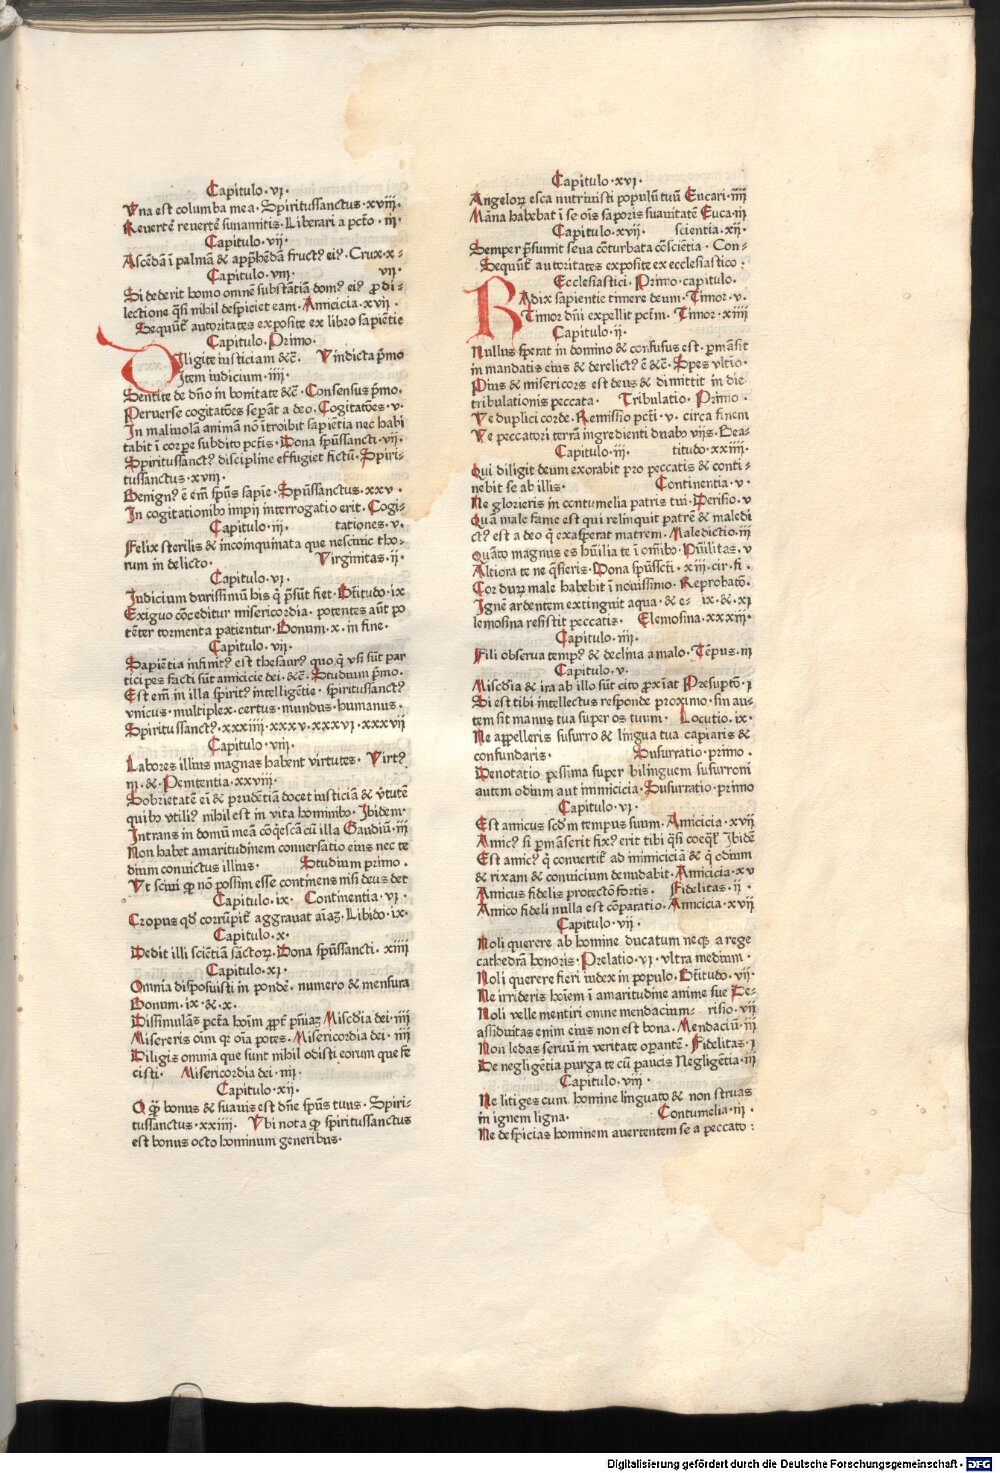 Capitulo·vi·
Vna est columba mea·Spiritussanctus·xviii·
Reuertē reuertē sunamitis·Liberari a pctō·iii·
Capitulo·vii·
Ascēdā ī palmā & apphēdā fruct⁹ ei⁹·Crux·x-
Capitulo·viii· vii·
Si dederit homo omnē substātiā dom⁹ ei⁹ ꝓ di-
lectione q̄si nihil despiciet eam·Amicicia·xvii·
Sequūt᷑ autoritates exposite ex libro sapiētie
Capitulo·Primo·
Diligite iusticiam &c̄· Vindicta p̄mo
Item iudicium·iiii·
Sentite de dn̄o in bonitate &c̄·Consensus p̄mo·
Peruerse cogitatōes sepāt a deo·Cogitatōes·v·
In maliuolā animā nō ītroibit sapiētia nec habi
tabit ī corpe subdito pctīs·Dona spūssancti·vii·
Spiritussanct⁹ discipline effugiet fictū·Spiri-
tussanctus·xvii·
Benign⁹ ē em̄ spūs sapīe·Spūssanctus·xxv·
In cogitationib⁹ impii interrogatio erit·Cogi-
Capitulo·iii· tationes·v·
Felix sterilis & incoinquinata que nesciuit tho-
rum in delicto· Virginitas·ii·
Capitulo·vi·
Iudicium durissimū his q̄ p̄sūt fiet·Btītudo·ix
Exiguo cōceditur misericordia·potentes aūt po
tēter tormenta patientur·Bonum·x·in fine·
Capitulo·vii·
Sapiētia infinit⁹ est thesaur⁹ quo q̄ vsi sūt par
ticipes facti sūt amicicie dei·&c̄·Studium p̄mo·
Est em̄ in illa spirit⁹ intelligētie·spiritussanct⁹
vnicus·multiplex·certus·mundus·humanus·
Spiritussanct⁹·xxxiiii·xxxv·xxxvi·xxxvii
Capitulo·viii·
Labores illius magnas habent virtutes· Virt⁹
iii·&·Penitentia·xxviii·
Sobrietatē ei & prudētiā docet iusticiā & v̄tutē
quib⁹ vtili⁹ nihil est in vita hominib⁹·Ibidem·
Intrans in domū meā cōq̄escā cū illa Gaudiū·iii
Non habet amaritudinem conuersatio eius nec te
dium conuictus illius· Studium primo·
Vt sciui ꝙ nō possim esse continens nisi deus det
Capitulo·ix· Continentia·vi·
Corpus qd̄ corrūpit᷑ aggrauat aīaʒ·Libido·ix·
Capitulo·x·
Dedit illi sciētiā sāctoꝝ·Dona spūssancti·xiiii
Capitulo·xi·
Omnia disposuisti in pondē·numero & mensura
Bonum·ix·&·x·
Dissimulās pctā hoīm ꝓpt᷑ pn̄iaʒ Miscdia dei·iiii
Misereris oīm qꝛ oīa potes·Misericordia dei·iiii
Diligis omnia que sunt nihil odisti eorum que fe
cisti· Misericordia dei·iiii·
Capitulo·xii·
O ꝙ bonus & suauis est dn̄e spūs tuus·Spiri-
tussanctus·xxiiii· Vbi nota ꝙ spiritussanctus
est bonus octo hominum generibus·
Capitulo·xvi·
Angeloꝝ esca nutriuisti populū tuū Eucari·iiii
Māna habebat ī se oīs saporis suauitatē Euca·iii
Capitulo·xvii· scientia·xii·
Semper p̄sumit seua cōturbata cōsciētia·Con-
Sequūt᷑ autoritates exposite ex ecclesiastico:
Ecclesiastici·Primo·capitulo·
Radix sapientie timere deum·Timor·v·
Timor dn̄i expellit pctm̄·Timor·xiiii
Capitulo·ii·
Nullus sperat in domino & confusus est·pmāsit
in mandatis eius & derelict⁹ ē &c̄·Spes vltīo·
Pius & misericors est deus & dimittit in die
tribulationis peccata· Tribulatio·Primo·
Ve duplici corde·Remissio pctī·v·circa finem
Ve peccatori terrā ingredienti duab⁹ viis·Bea-
Capitulo·iii· titudo·xxiiii·
Qui diligit deum exorabit pro peccatis & conti-
nebit se ab illis· Continentia·v·
Ne glorieris in contumelia patris tui·Derisio·v
Quā male fame est qui relinquit patrē & maledi
ct⁹ est a deo q̄ exasperat matrem·Maledictio·iii
Quāto magnus es hūilia te ī omīb⁹·Hūilitas·v
Altiora te ne q̄sieris·Dona spūsctī·xiii·cir·fi·
Cor duꝝ male habebit ī nouissimo·Reprobatō·
Ignē ardentem extinguit aqua·& e- ix·&·xi
lemosina resistit peccatis· Elemosina·xxxiii·
Capitulo·iiii·
Fili obserua temp⁹ & declina a malo·Tēpus·iii
Capitulo·v·
Miscdia & ira ab illo sūt cito ꝓxīat Presuptō·i
Si est tibi intellectus responde proximo·sin au-
tem sit manus tua super os tuum· Locutio·ix·
Ne appelleris susurro & lingua tua capiaris &
confundaris· Susurratio·primo·
Denotatio pessima super bilinguem susurroni
autem odium aut inimicicia·Susurratio·primo
Capitulo·vi·
Est amicus scdm̄ tempus suum·Amicicia·xvii
Amic⁹ si pmāserit fix⁹ erit tibi q̄si coeq̄l᷑ Ibidē
Est amic⁹ q̄ conuertit᷑ ad inimiciciā & q̄ odium
& rixam & conuicium denudabit·Amicicia·xv
Amicus fidelis protectō fortis· Fidelitas·ii·
Amico fideli nulla est cōparatio·Amicicia·xvii
Capitulo·vii·
Noli querere ab homine ducatum neqꝫ a rege
cathedrā honoris·Prelatio·vi·vltra medium·
Noli querere fieri iudex in populo·Btītudo·vii·
Ne irrideris hoīem ī amaritudine anime sue De-
Noli velle mentiri omne mendacium- risio·vii
assiduitas enim eius non est bona·Mendaciū·iii
Non ledas seruū in veritate operantē·Fidelitas·i
De negligētia purga te cū paucis Negligētia·iii
Capitulo·viii·
Ne litiges cum homine linguato & non struas
in ignem ligna· Contumelia·iii·
Ne despicias hominem auertentem se a peccato:
Digitalisierung gefördert durch die Deutsche Forschungsgemeinschaft - DFG